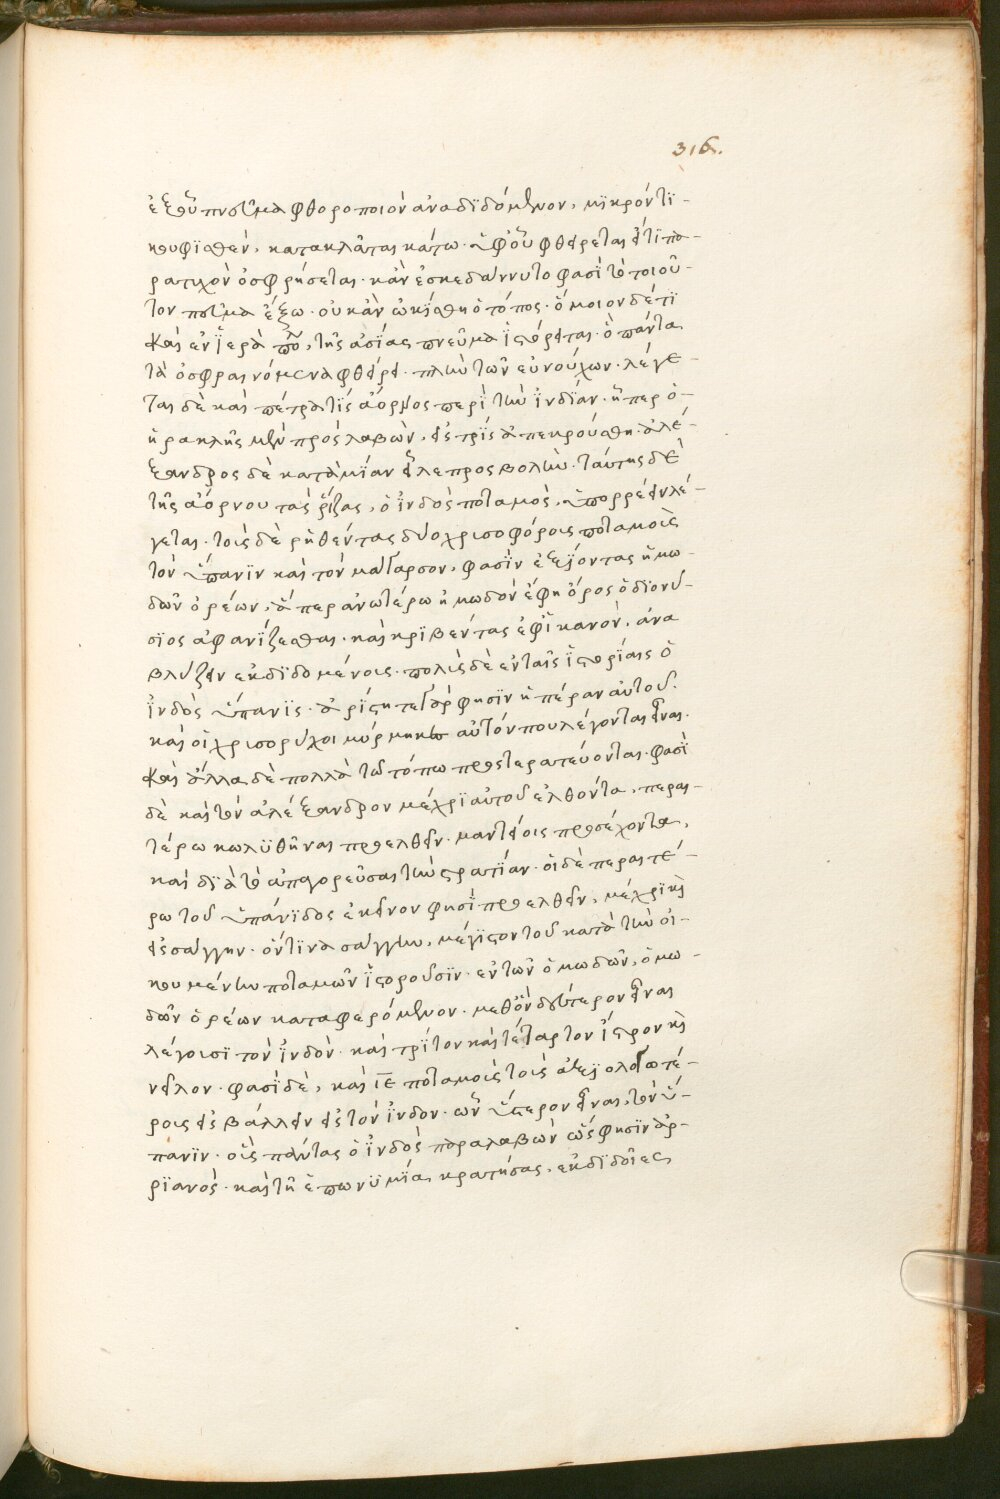 316.
ἐξ οὗ πνεῦμα φθοροποιὸν ἀναδιδόμενον, μικρόν τι
κουφισθὲν, κατακλᾶται κάτω· ὑφ' οὗ φθείρεται εἴ τι πο-
ρατικὸν ὀσφρήσεται· κἂν ἐσκεδάννυτο φασὶ τὸ τοιοῦ-
τον πνεῦμα ἔξω· οὐκ ἂν ὠκίσθη ὁ τόπος· ὅμοιον δέ τι
καὶ ἐν ἱερᾷ πόλει τῆς ἀσίας πνεῦμα ἱστόρειται· ὃ πάντα
τὰ ὀσφραινόμενα φθείρει· πλὴν τῶν εὐνούχων· λέγε
ται δὲ καὶ πέτρα τίς ἄορνος περὶ τὴν ἰνδίαν· ἥπερ ὁ
ἡρακλῆς μὲν προσλαβὼν, εἰς τρὶς ἀπεκρούσθη· ἀλέ-
ξανδρος δὲ κατὰ μίαν εἷλε προσβολὴν· ταύτης δὲ
τῆς ἀόρνου τὰς ῥίζας, ὁ ἰνδὸς ποταμὸς, ὑπορρέειν λέ-
γεται· τοὶς δὲ ῥηθέντας δύο χρισοφόροις ποταμοὶς
τὸν ὕπανιν καὶ τὸν μάγαρσον, φασὶν ἐξιόντας ἡμω-
δῶν ὀρέων, ἅπερ ἀνωτέρω ἡμωδὸν ἔφη ὄρος ὁ διονύ-
σιος ἀφανίζεσθαι· καὶ κριβέντας ἐφ' ἱκανὸν, ἀνα
βλύζειν ἐκδιδομένοις· πολὶς δὲ ἐν ταῖς ἱστορίαις ὁ
ἰνδὸς ὕπανις· ἀρίστη τε γάρ φησιν ἡ πέραν αὐτοῦ·
καὶ οἱ χρισορύχοι μύρμηκες αὐτόν που λέγονται εἶναι·
καὶ ἄλλα δὲ πολλὰ τῷ τόπω προστερατεύονται· φασὶ
δὲ καὶ τὸν ἀλέξανδρον μέχρι αὐτοῦ ἐλθόντα, περαι-
τέρω κωλυθῆναι προελθεῖν· μαντείοις προσέχοντα,
καὶ διὰ τὸ ἀπαγορεῦσαι τὴν στρατίαν· οἱ δὲ περαιτέ-
ρω τοῦ ὑπάνιδος ἐκεῖνον φησὶ προελθεῖν, μέχρι καὶ
εἰς σάγγην· ὅντινα σάγγην, μέγιστον τοῦ κατὰ τὴν οἰ-
κουμένην ποταμῶν ἱστοροῦσιν· ἐν τῶν ὁμωδῶν, ὁμω-
δῶν ὀρέων καταφερόμενον· μεθ' ὃν δεύτερον εἶναι
λέγοισι τὸν ἰνδὸν· καὶ τρίτον καὶ τέταρτον ἴστρον καὶ
νεῖλον· φασὶ δὲ, καὶ ιε ποταμοὶς τοὶς ἀξιολογωτέ-
ροις εἰσβάλλειν εἰς τὸν ἰνδον· ὧν ὕστερον εἶναι, τὸν ὕ-
πανιν· οἳς πάντας ὁ ἰνδὸς παραλαβὼν ὥς φησιν ἀρ-
ριανὸς· καὶ τῆ ἐπωνυμία κρατήσας, ἐκδιδοῖ ἐς